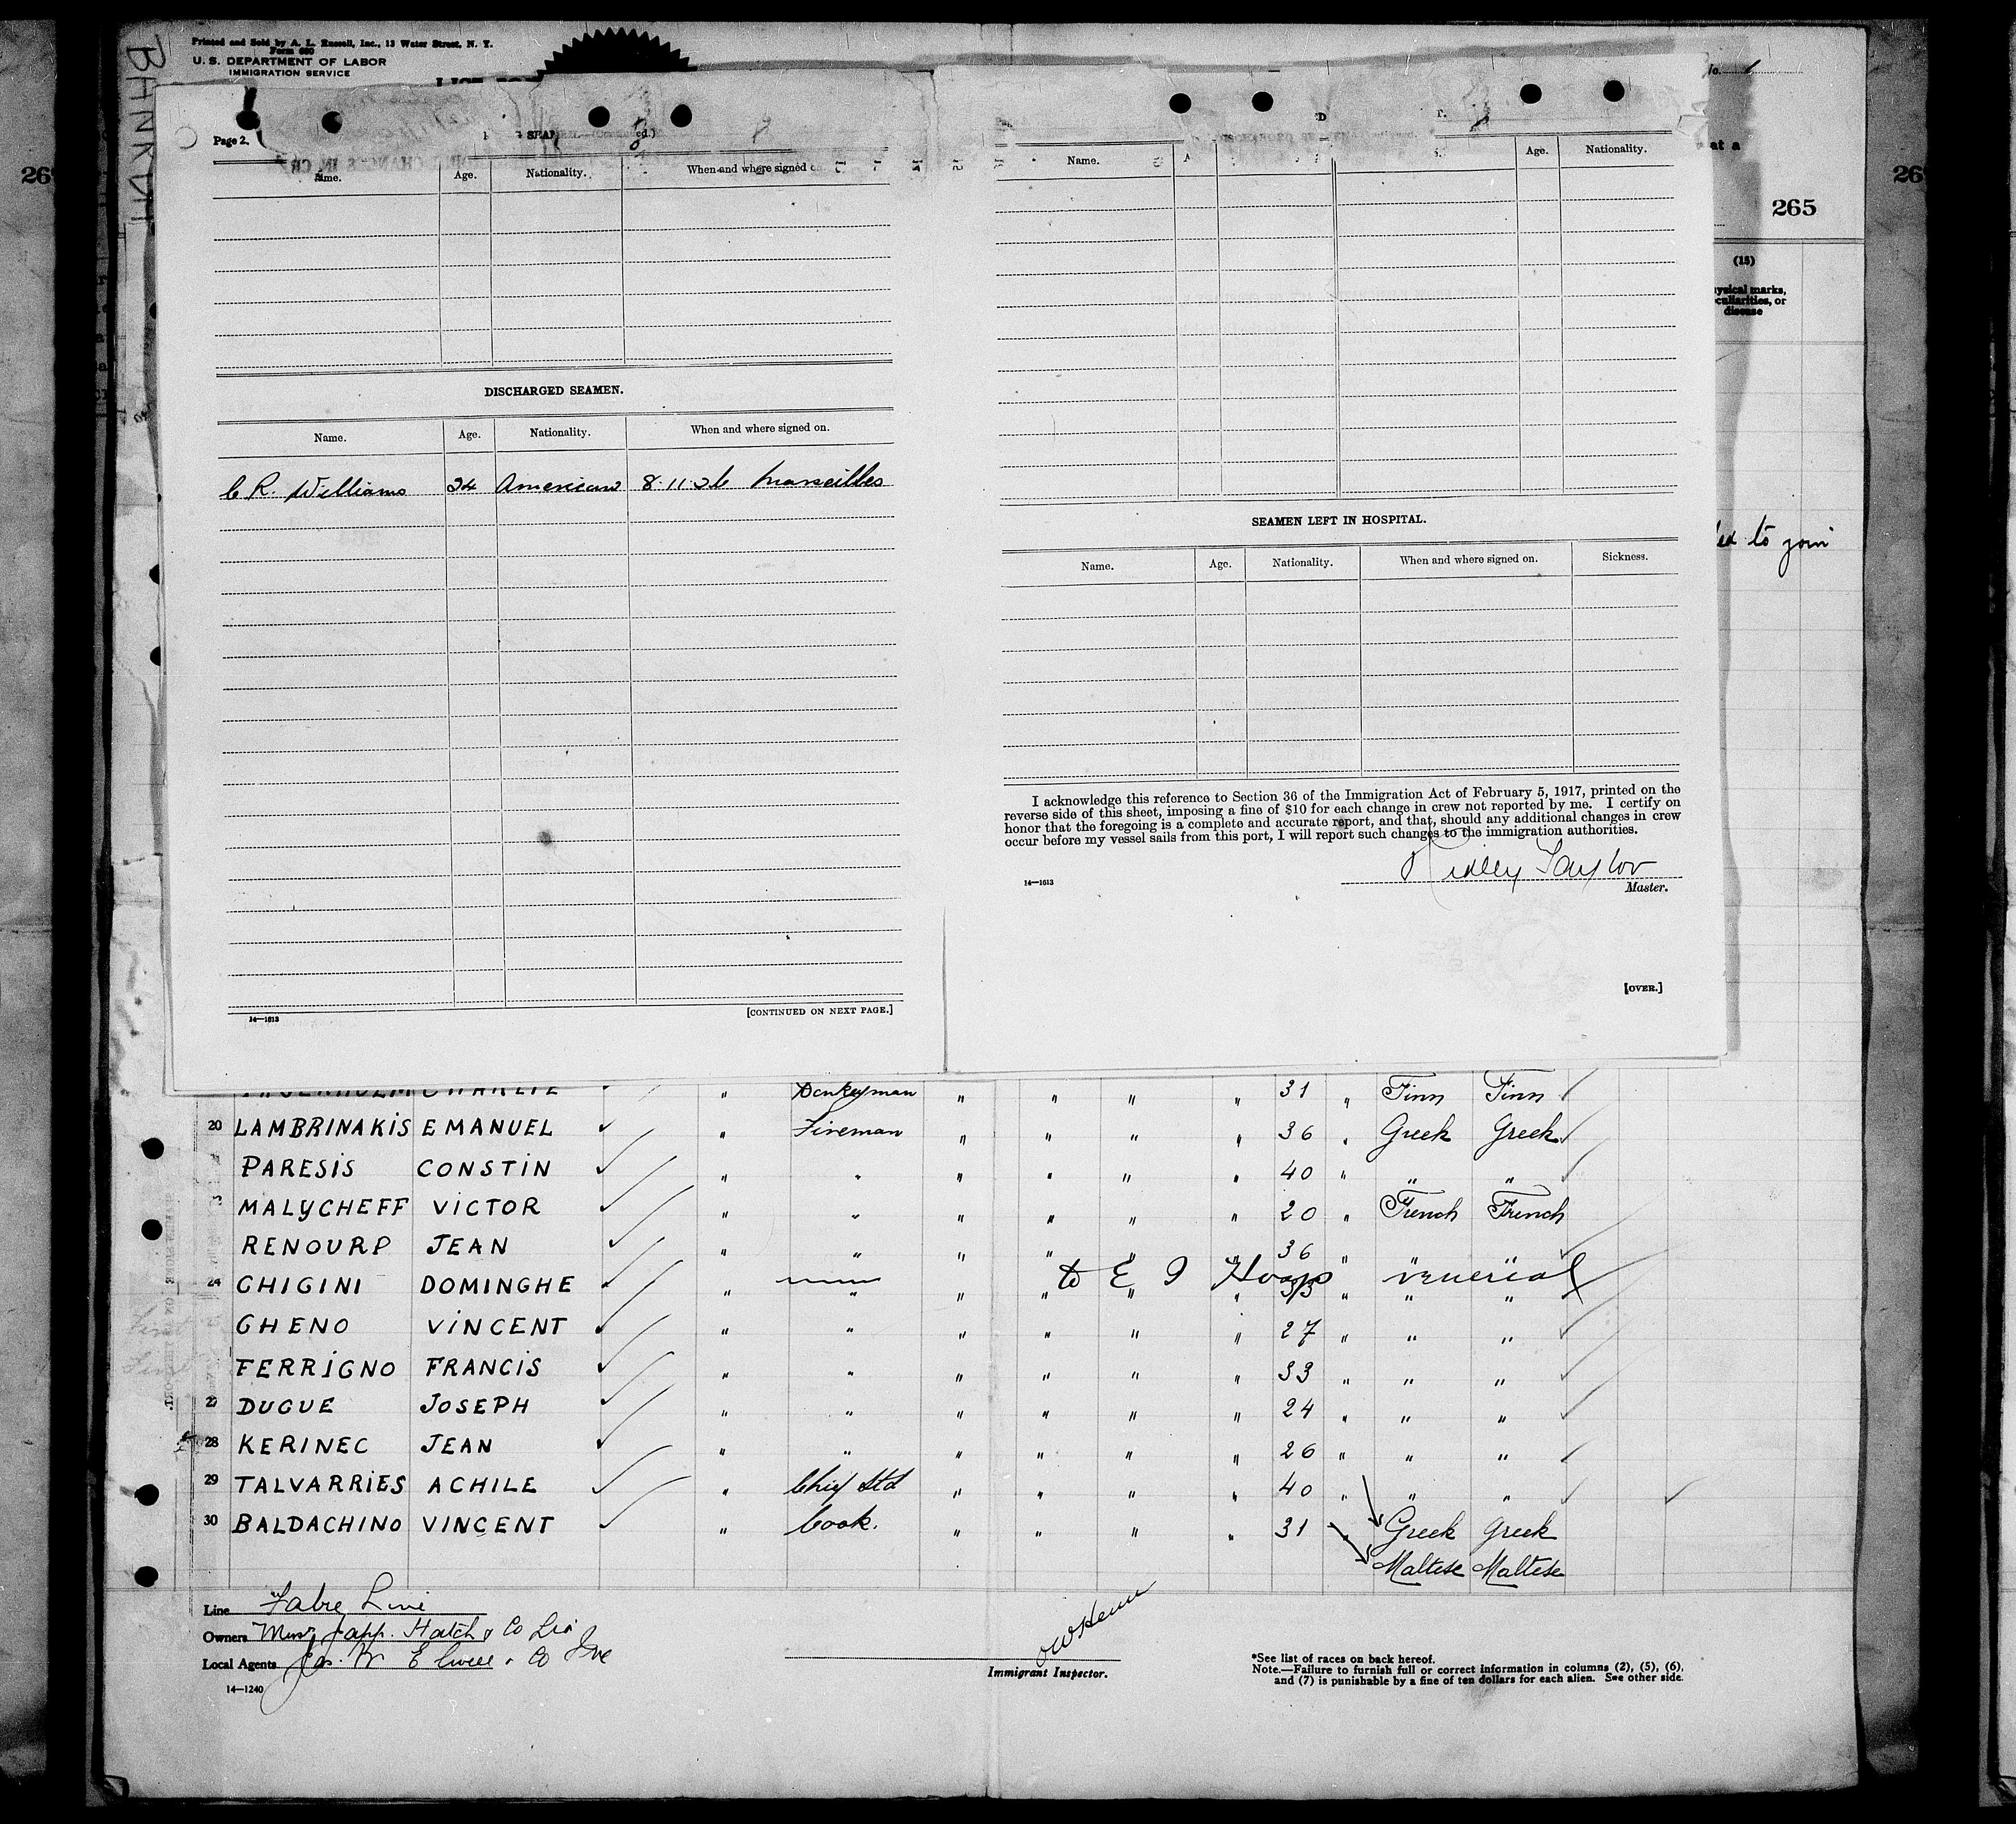 Printed and Sold by A. L. Russell, Inc., 13 Water Street, N. Y.
Form 680
U. S. DEPARTMENT OF LABOR
IMMIGRATION SERVICE
265
at a
(15)
Page 2.
Name. Age. Nationality. When and where signed
DISCHARGED SEAMEN.
Name. Age. Nationality. When and where signed on.
C R. Williams 24 American 8·11·26 Marseilles
14—1613
[CONTINUED ON NEXT PAGE.]
Name. Age. Nationality.
SEAMEN LEFT IN HOSPITAL.
Name. Age. Nationality. When and where signed on. Sickness.
I acknowledge this reference to Section 36 of the Immigration Act of February 5, 1917, printed on the
reverse side of this sheet, imposing a fine of $10 for each change in crew not reported by me. I certify on
honor that the foregoing is a complete and accurate report, and that, should any additional changes in crew
occur before my vessel sails from this port, I will report such changes to the immigration authorities.
Ridley Taylor
14—1613
Master.
[OVER.]
ysical marks,
culiarities, or
disease
to join
CHARLIE " Donkeyman " " " " 31 " Finn Finn
20 LAMBRINAKIS EMANUEL " Fireman " " " " 36 " Greek Greek
PARESIS CONSTIN " " " " " " 40 " " "
MALYCHEFF VICTOR " " " " " " 20 " French French
RENOURP JEAN " " " " " " 36 " " "
24 GHIGINI DOMINGHE " " " " " " 33 " " "
to E I Hosp venereal
GHENO VINCENT " " " " " " 27 " " "
FERRIGNO FRANCIS " " " " " " 33 " " "
DUGUE JOSEPH " " " " " " 24 " " "
28 KERINEC JEAN " " " " " " 26 " " "
29 TALVARRIES ACHILE " Chief Std " " " " 40 " " "
30 BALDACHINO VINCENT " Cook. " " " " 31 " Greek Greek
Maltese Maltese
Line Fabre Line
Owners Japp. Hatch & Co
Local Agents Jas. W Elwell & Co Inc
14—1240
Immigrant Inspector.
*See list of races on back hereof.
Note.—Failure to furnish full or correct information in columns (2), (5), (6),
and (7) is punishable by a fine of ten dollars for each alien. See other side.